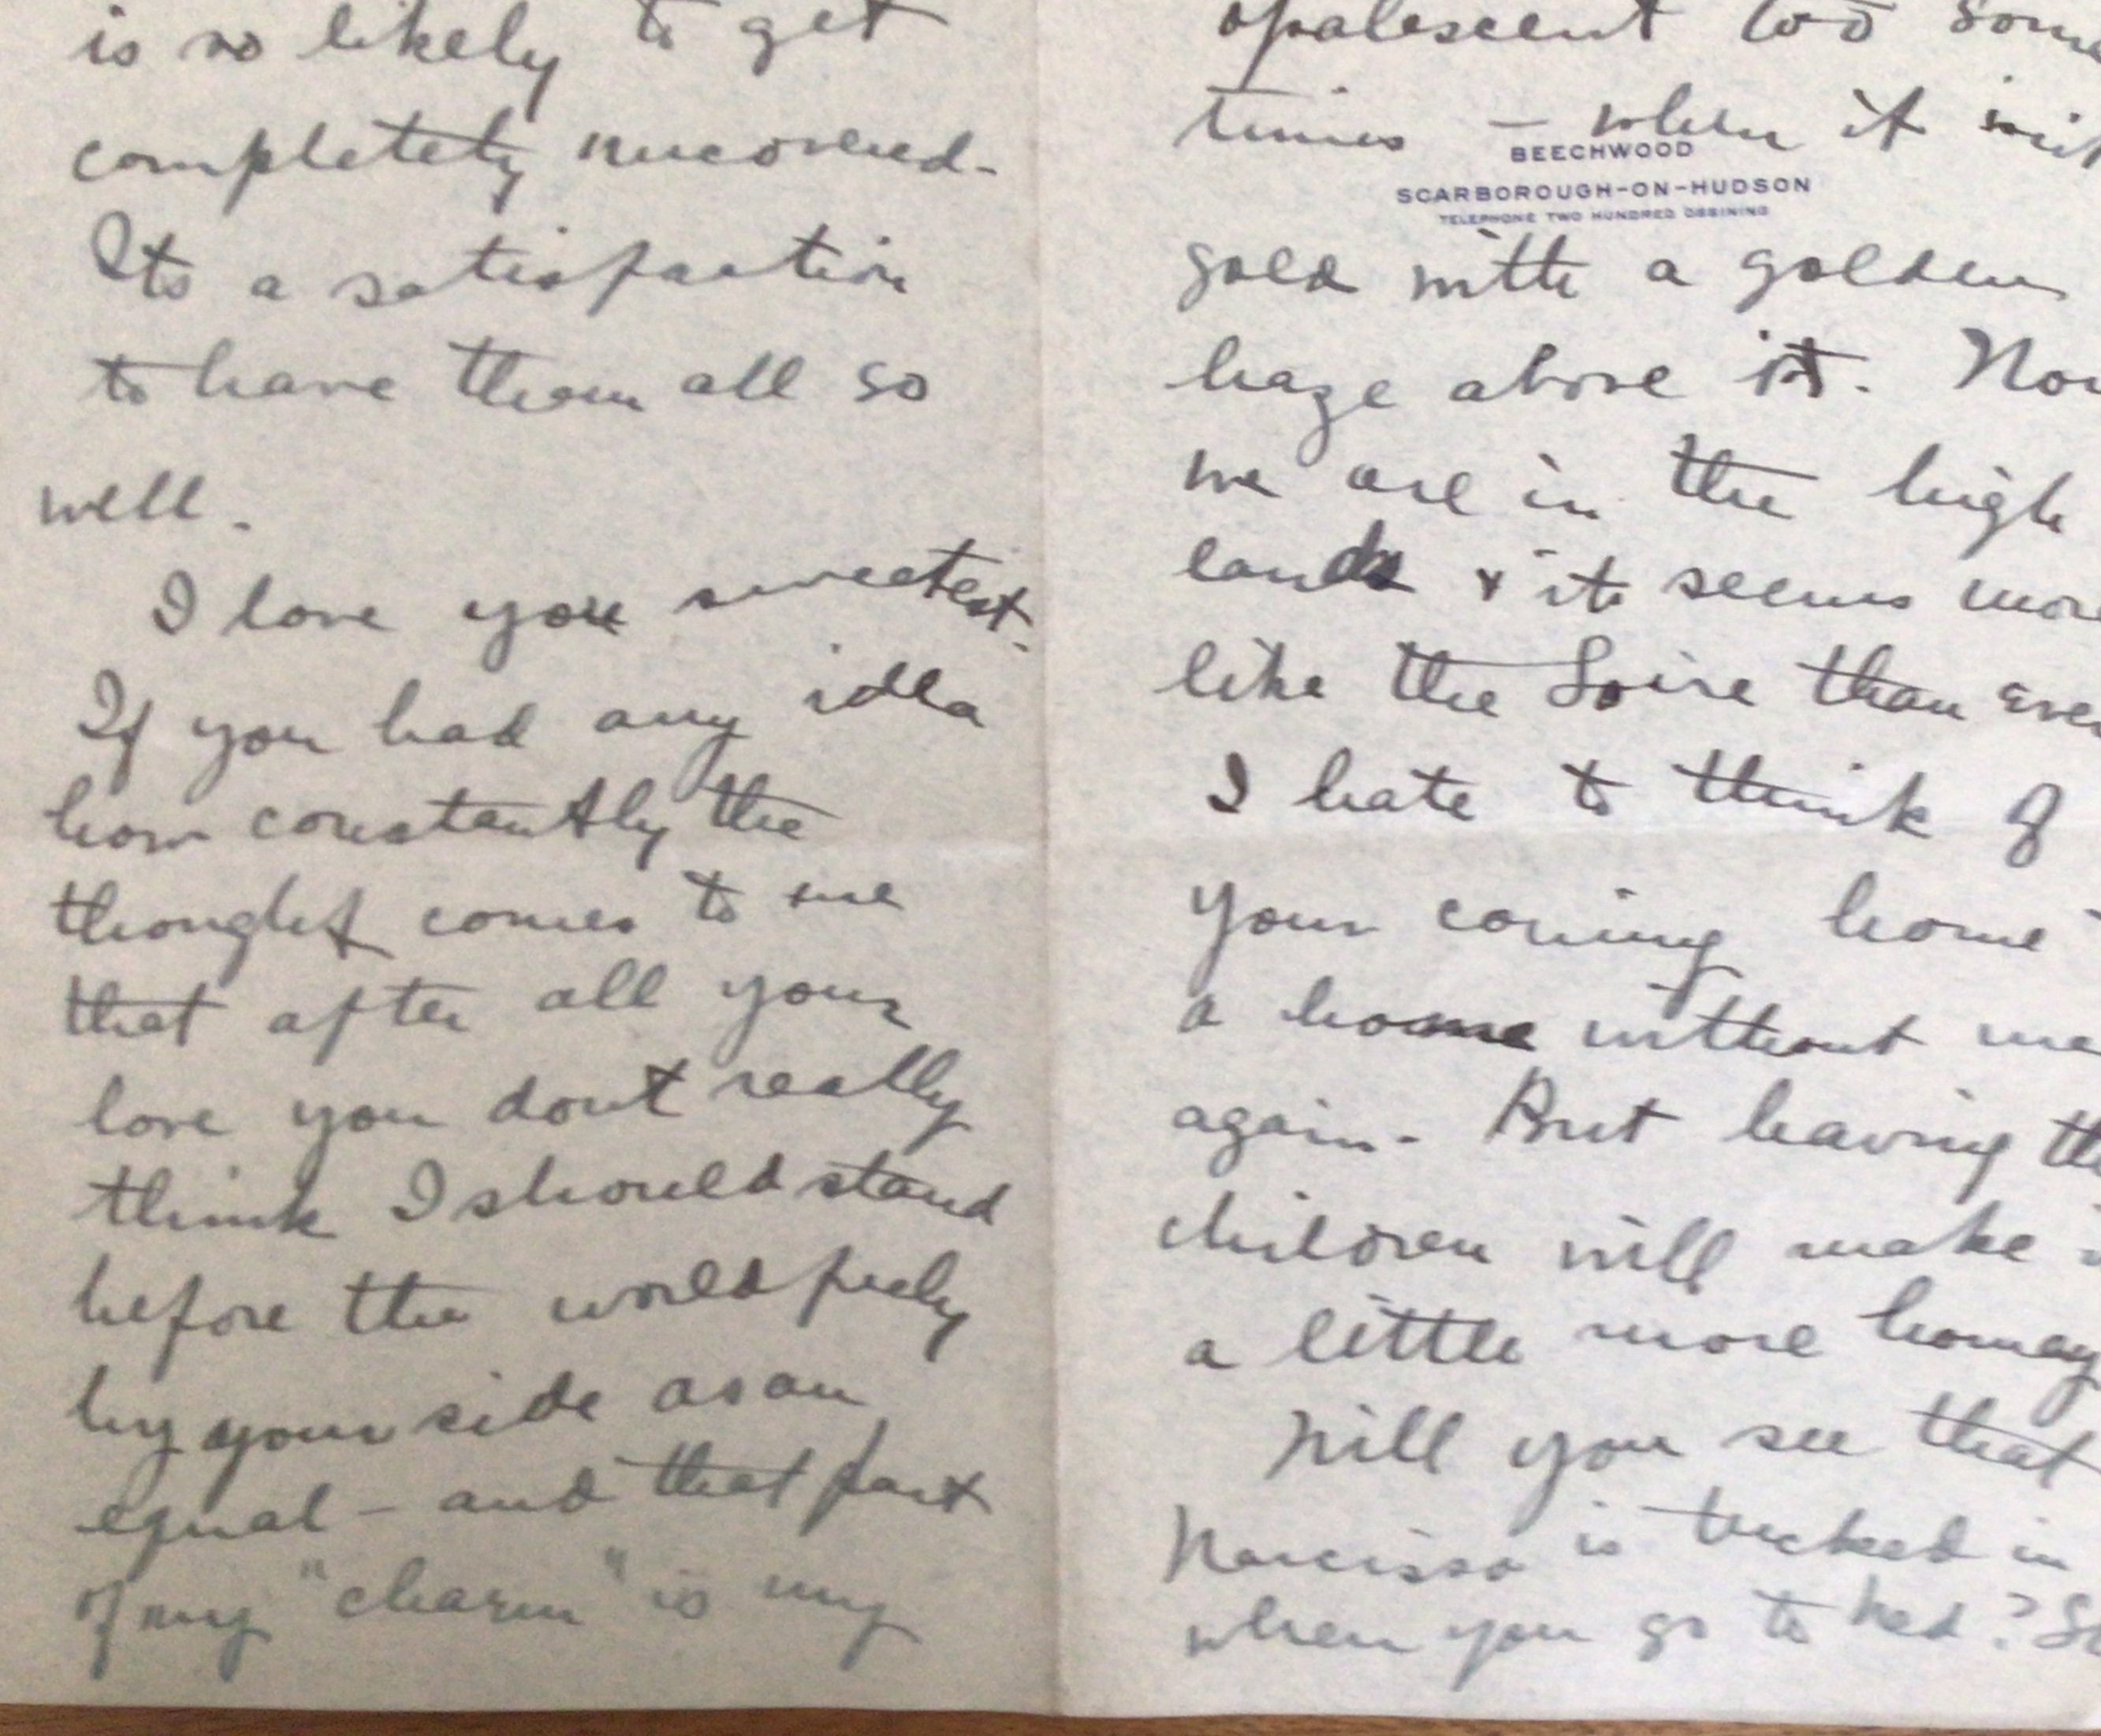 is so likely to get
completely uncovered.
Its a satisfaction
to have them all so
well.
I love you sweetest.
If you had any idea
how constantly the
thought comes to me
that after all your
love you dont really
think I should stand
before the world freely
by your side as an
equal – and that part
of my "charm" is my
opalescent too some
times – when it isn't
BEECHWOOD
SCARBOROUGH-ON-HUDSON
TELEPHONE TWO HUNDRED OSSINING
gold with a golden
haze above it. Now
we are in the high
lands & it seems more
like the Loire than ever
I hate to think of
your coming home
a home without me
again. But having the
children will make
a little more homey
Will you see that
Narcissa is tucked in
when you go to bed? S